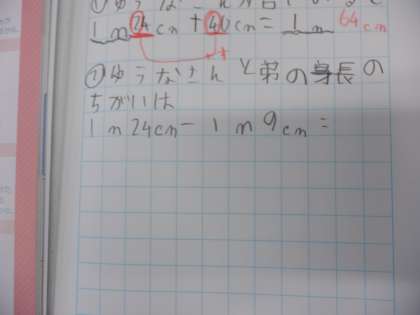 1m24cm+40cm=1m64cm
①ゆうなさんと弟の身長の
ちがいは
1m24cm-1m9cm=